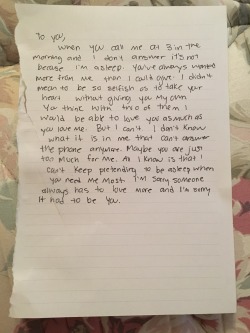 To you,
When you call me at 3 in the
morning and I don't answer it's not
because I'm asleep. You've always wanted
more from me than I could give. I didn't
mean to be so selfish as to take your
heart without giving you my own.
You think with two of them I
would be able to love you as much as
you love me. But I can't. I don't know
what it is in me that can't answer
the phone anymore. Maybe you are just
too much for me. All I know is that I
can't keep pretending to be asleep when
you need me most. I'm sorry someone
always has to love more and I'm sorry
it had to be you.